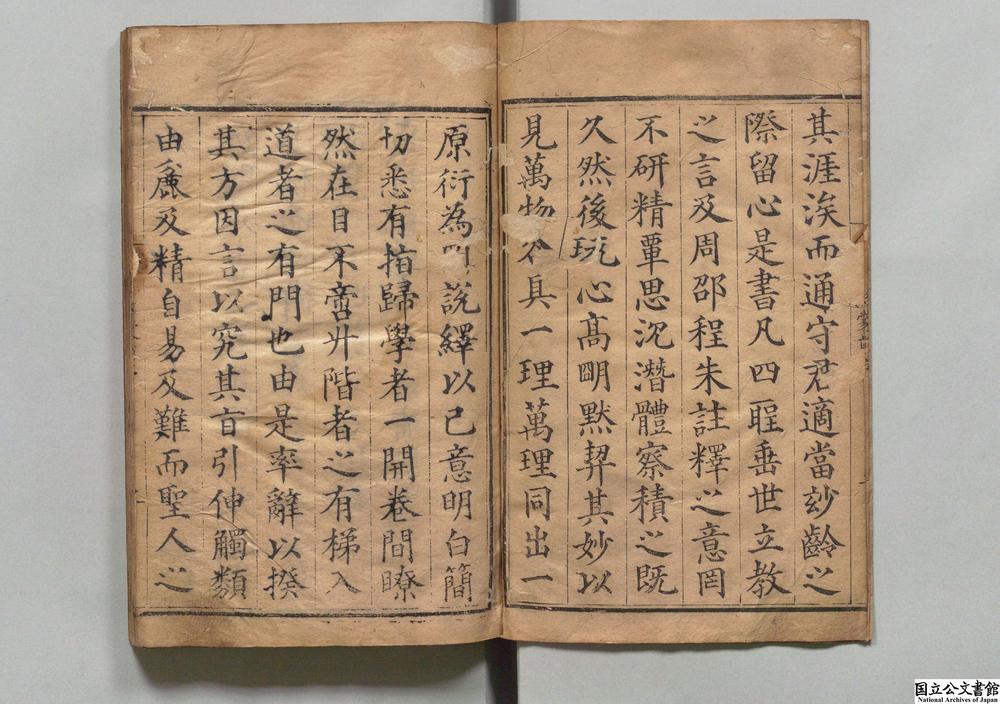 其涯涘而通守君適當玅齡之
際留心是書凡四聖垂世立教
之言及周邵程朱註釋之意罔
不研精覃思沉潛體察積之既
久然後玩心髙明默契其妙以
見萬物 具一理萬理同出一
原衍為 說繹以己意明白簡
切悉有指歸學者一開卷間瞭
然在目不啻升階者之有梯入
道者之有門也由是率辭以揆
其方因言以究其旨引伸觸類
由麁及精自易及難而聖人之
国立公文書館
National Archives of Japan